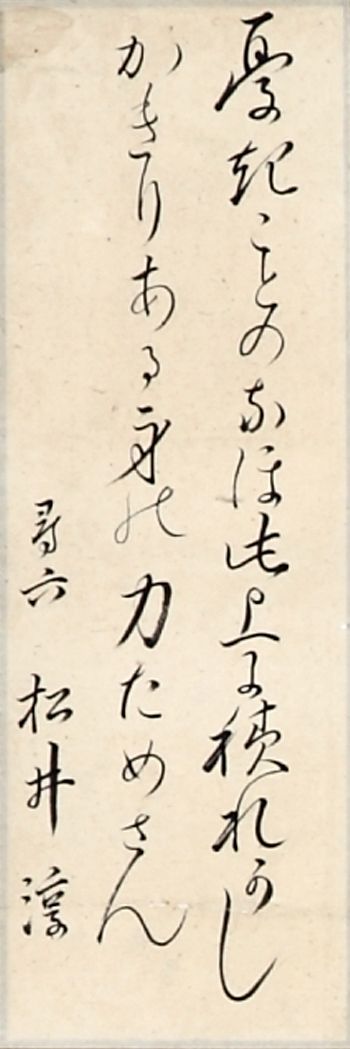 憂起ことのなほ此上に積れかし
かきりある身の力ためさん
尋六 松井淳